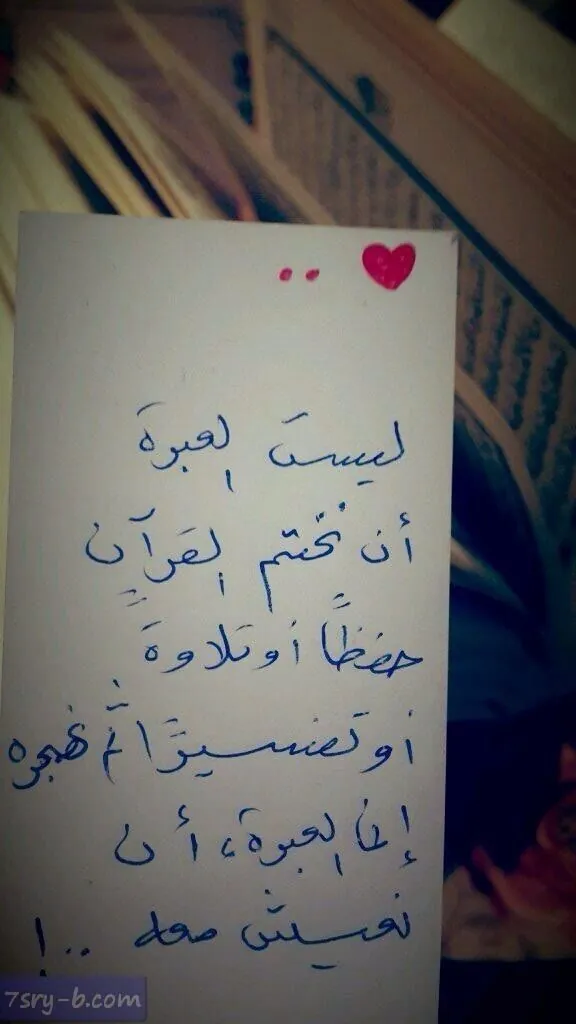 ♥ ..
ليست العبرة
أن نختم القرآن
حفظًا أو تلاوة
أو تفسيرًا ثم نهجره
إنما العبرة، أن
نعيش معه ..!
7sry-b.com